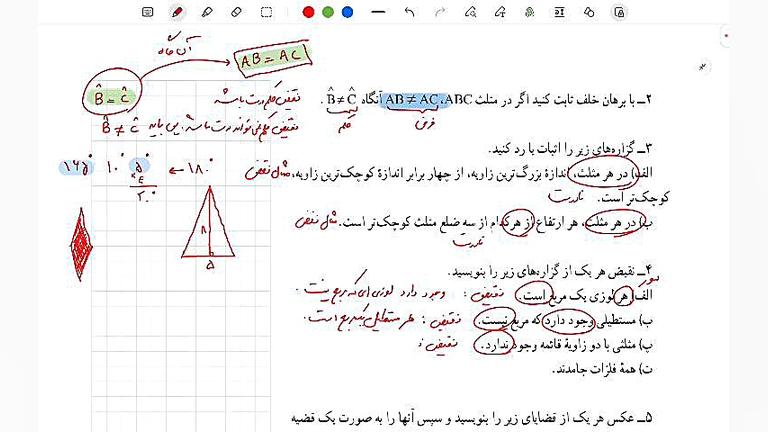 آن گاه
AB = AC
B̂ = Ĉ
۲ــ با برهان خلف ثابت کنید اگر در مثلث ABC، AB ≠ AC آنگاه B̂ ≠ Ĉ .
فرض
حکم
نقیض حکم درست باشد
نقیض حکم نمی تواند درست باشد. پس باید B̂ ≠ Ĉ
۳ــ گزاره‌های زیر را اثبات یا رد کنید.
الف) در هر مثلث، اندازهٔ بزرگ‌ترین زاویه، از چهار برابر اندازهٔ کوچک‌ترین زاویه، مثال نقض
۱۸۰° ←
۵° ۱۰° ۱۶۵°
×۴
۲۰°
کوچک‌تر است. نادرست
ب) در هر مثلث، هر ارتفاع از هر کدام از سه ضلع مثلث کوچک‌تر است. مثال نقض
نادرست
۸
۵
۴ــ نقیض هر یک از گزاره‌های زیر را بنویسید.
سور
الف) هر لوزی یک مربع است. نقیض : وجود دارد لوزی ای که مربع نیست
ب) مستطیلی وجود دارد که مربع نیست. نقیض : هر مستطیل یک مربع است.
پ) مثلثی با دو زاویهٔ قائمه وجود ندارد. نقیض :
ت) همهٔ فلزات جامدند.
۵ــ عکس هر یک از قضایای زیر را بنویسید و سپس آنها را به صورت یک قضیه